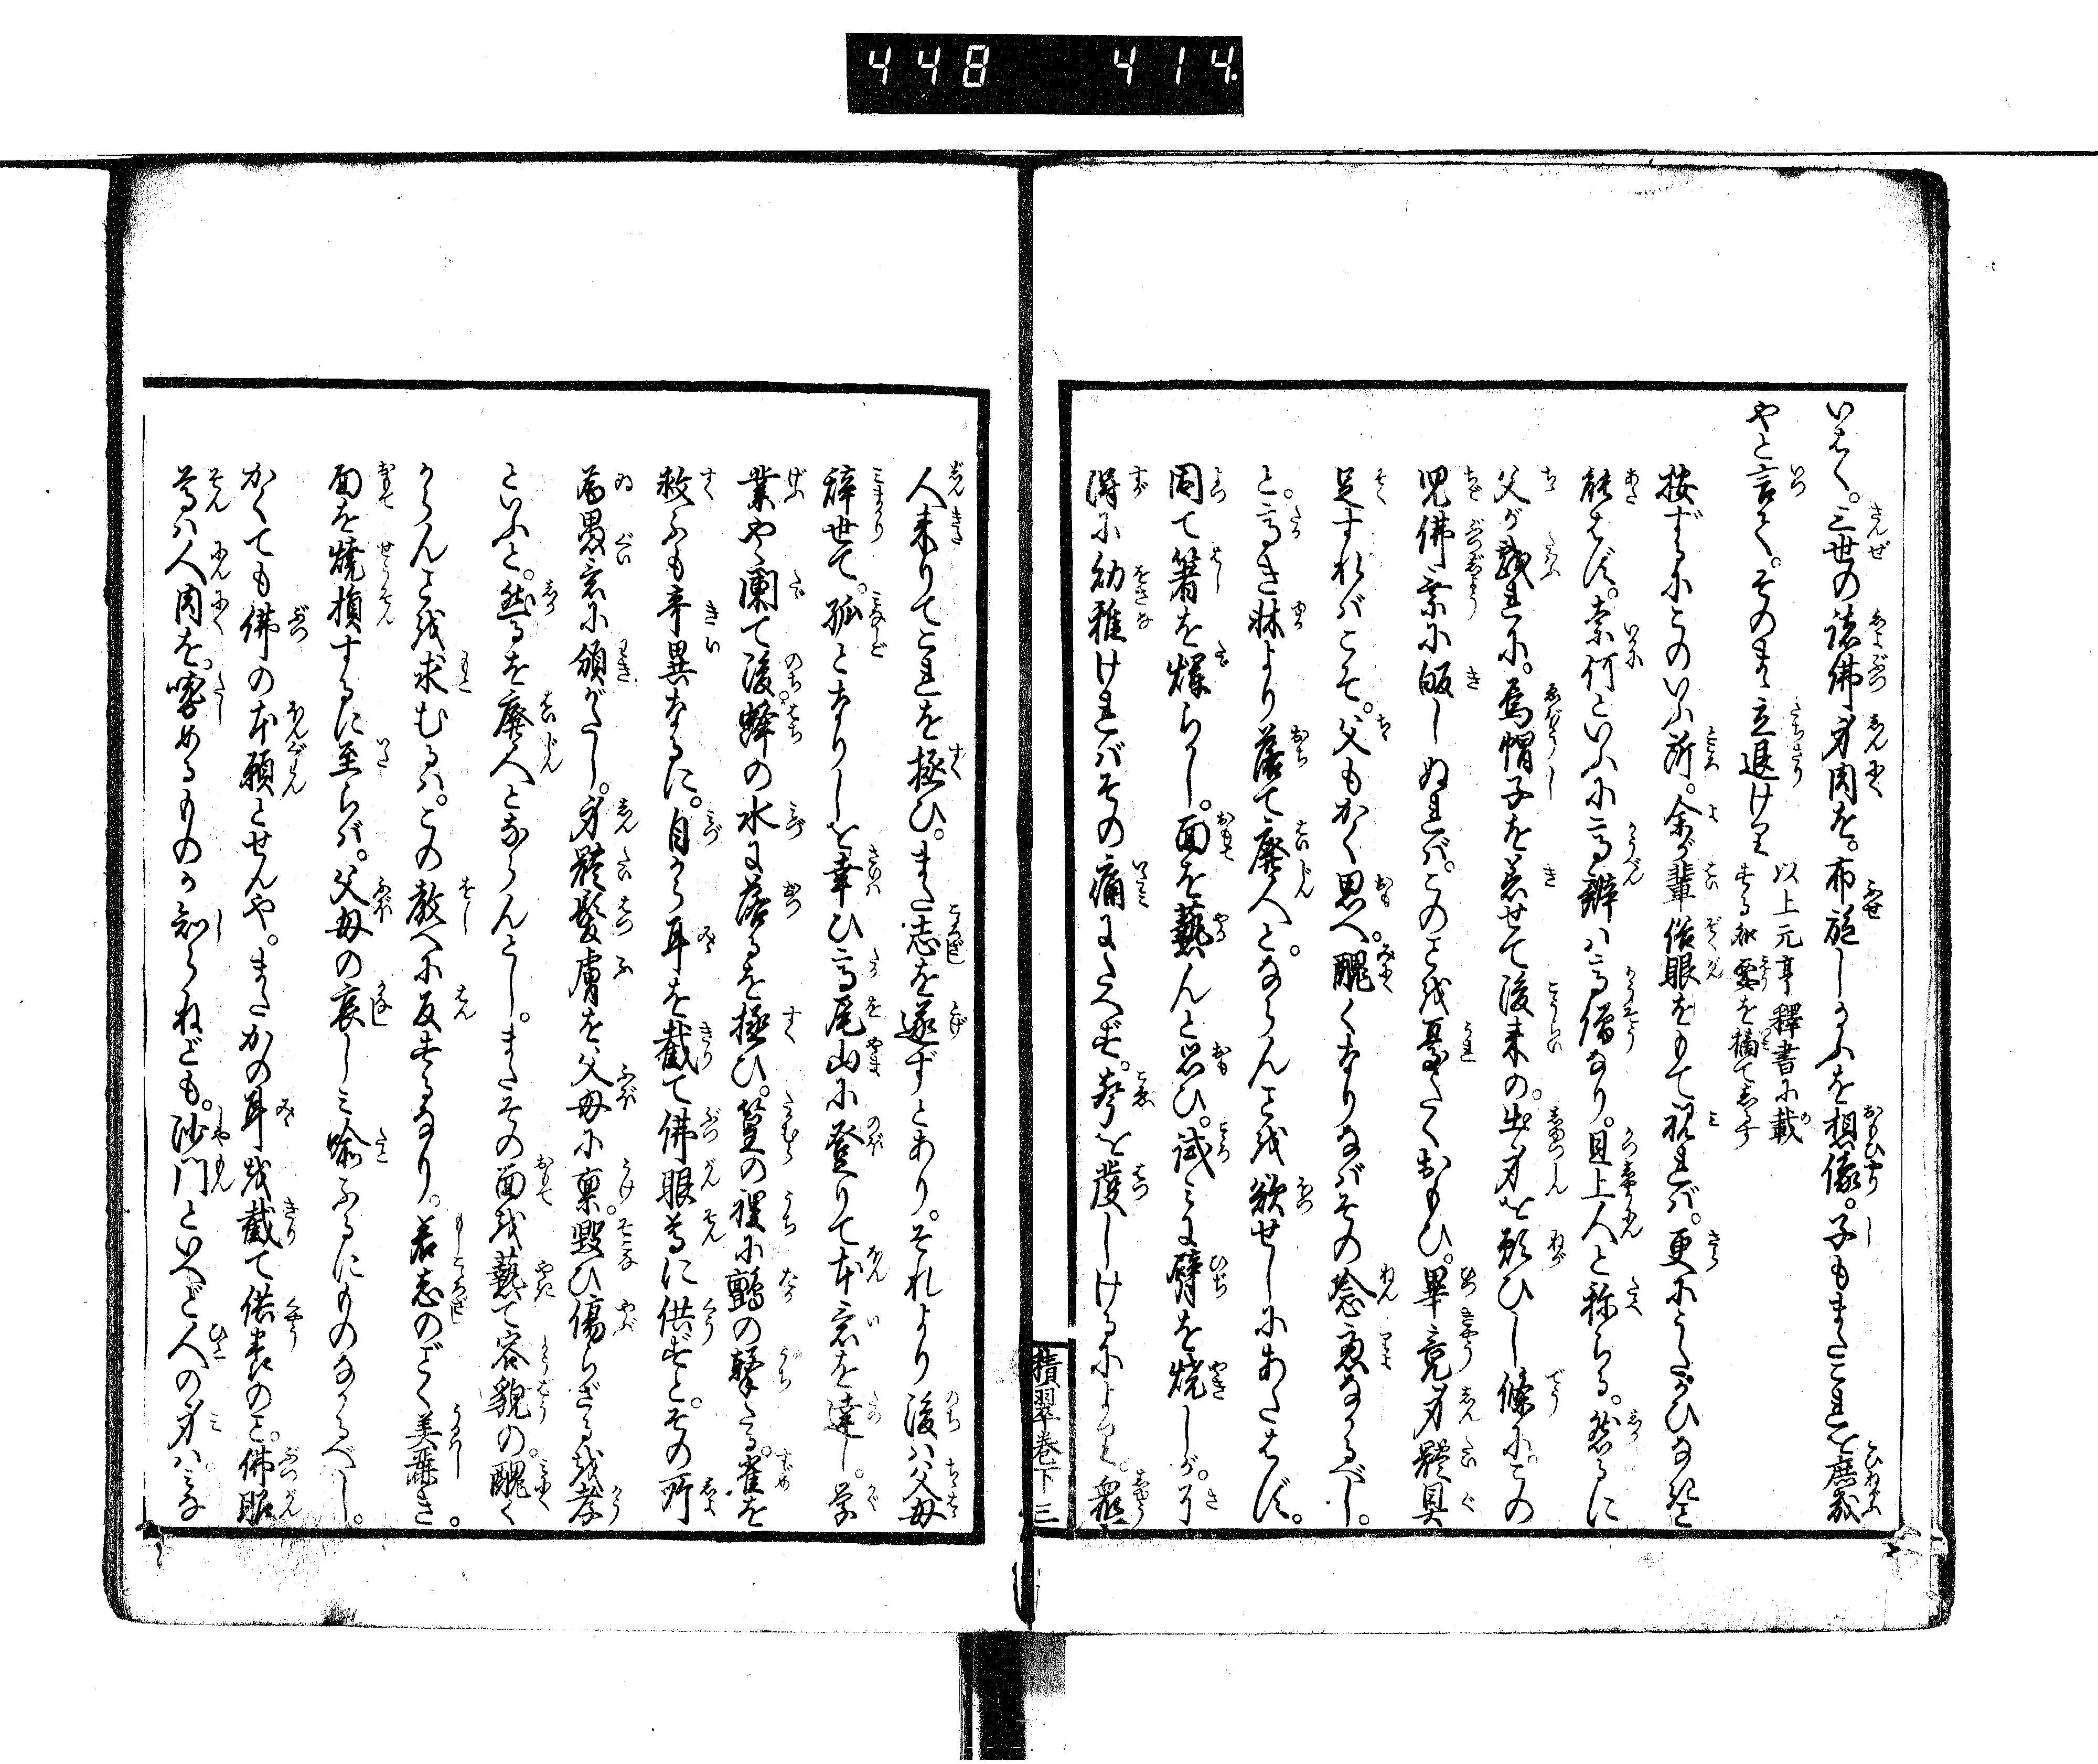 448 414.
いはく。三世の諸佛身肉を。布施し給ふを想像。子もまたこれを庶幾
やと言て。そのまゝ立退けり
以上元亨釋書に載
する処要を摘てしるす
按ずるにこのいふ所。余が輩俗眼をもて視れば。更にうたがひなきこと
能はず。奈何といふに高辧は高僧なり。且上人と称らる。然るに
父が戯れに。烏帽子を着せて後来の。出身を願ひし條に。この
児佛家に皈しぬればこのことを憂たくおもひ。畢竟身體具
足すればこそ。父もかく思へ。醜くなりなばその念慮なかるべし
と。高き牀より落て廃人と。ならんことを欲せしにあたはず。
因て箸を燿らし。面を熱んと思ひ。試みに臂を焼しが。
得に幼稚ければその痛にたへず。声を發しけるにより。衆
積翠巻下 三
人来りてこれを拯ひ。また志を遂ずとあり。それより後は父母
辞世て。孤となりしを幸ひ高尾山に登りて本意を達し。学
業やゝ闌て後。蜂の水に落るを拯ひ。篁の裡に鸇の撃たる。雀を
救ふも奇異なるに。自から耳を截て佛眼尊に供ずと。その所
為愚意に頷がたし。身體髪膚を父母に禀。毀ひ傷らざるを孝
といふと。然るを廃人とならんとし。またその面を熱て容貌の。醜く
からんことを求むるは。この教へに反するなり。若志のごく美麗き。
面を焼損するに至らば。父母の哀しみ喩ふるにものなかるべし。
かくても佛の本願とせんや。またかの耳を截て供養のこと。佛眼
尊は人肉を。嘗めるものか知らねども。沙門といへど人の身は。みな